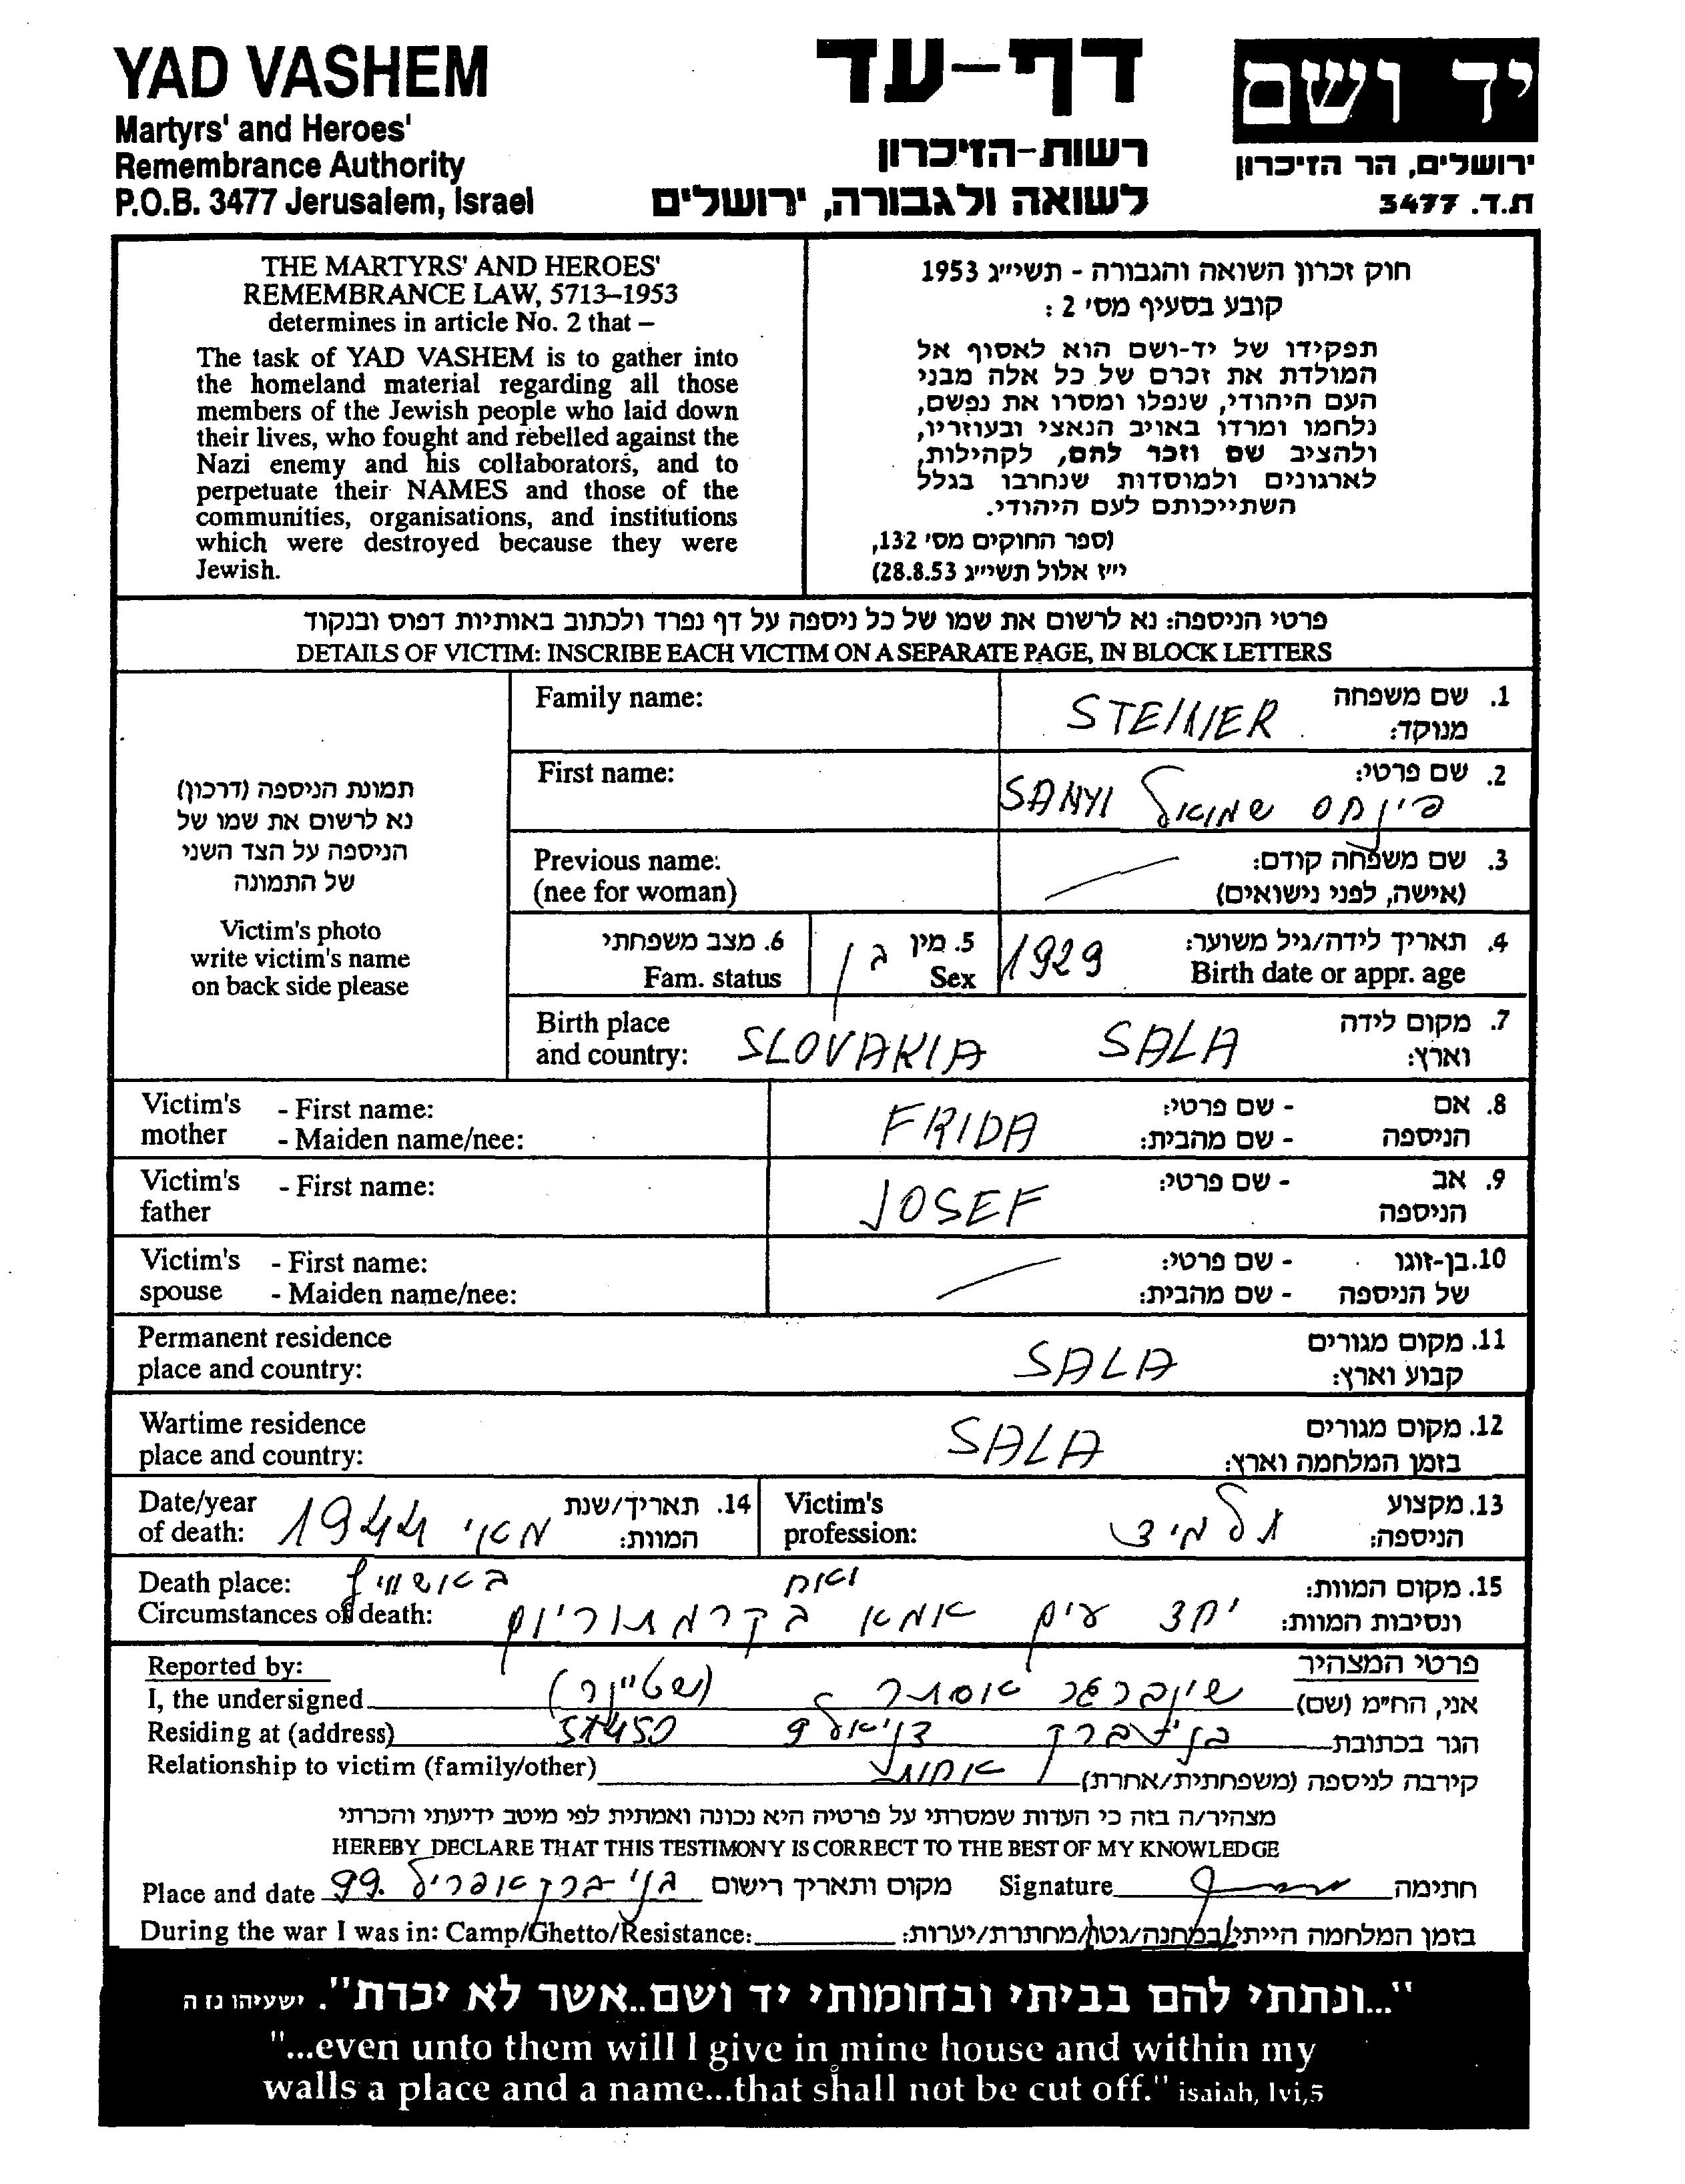 YAD VASHEM
Martyrs' and Heroes'
Remembrance Authority
P.O.B. 3477 Jerusalem, Israel
דף-עד
רשות-הזיכרון
לשואה ולגבורה, ירושלים
יד ושם
ירושלים, הר הזיכרון
ת.ד. 3477
THE MARTYRS' AND HEROES'
REMEMBRANCE LAW, 5713–1953
determines in article No. 2 that –
The task of YAD VASHEM is to gather into
the homeland material regarding all those
members of the Jewish people who laid down
their lives, who fought and rebelled against the
Nazi enemy and his collaborators, and to
perpetuate their NAMES and those of the
communities, organisations, and institutions
which were destroyed because they were
Jewish.
חוק זכרון השואה והגבורה - תשי״ג 1953
קובע בסעיף מס׳ 2 :
תפקידו של יד-ושם הוא לאסוף אל
המולדת את זכרם של כל אלה מבני
העם היהודי, שנפלו ומסרו את נפשם,
נלחמו ומרדו באויב הנאצי ובעוזריו,
ולהציב שם וזכר להם, לקהילות,
לארגונים ולמוסדות שנחרבו בגלל
השתייכותם לעם היהודי.
(ספר החוקים מס׳ 132,
י״ז אלול תשי״ג 28.8.53)
פרטי הניספה: נא לרשום את שמו של כל ניספה על דף נפרד ולכתוב באותיות דפוס ובנקוד
DETAILS OF VICTIM: INSCRIBE EACH VICTIM ON A SEPARATE PAGE, IN BLOCK LETTERS
תמונת הניספה (דרכון)
נא לרשום את שמו של
הניספה על הצד השני
של התמונה
Victim's photo
write victim's name
on back side please
Family name: STEINER 1. שם משפחה
מנוקד:
First name: SANYI פינחס שמואל 2. שם פרטי:
Previous name: 3. שם משפחה קודם:
(nee for woman) (אישה, לפני נישואים)
6. מצב משפחתי 5. מין בן 1929 4. תאריך לידה/גיל משוער:
Fam. status Sex Birth date or appr. age
Birth place 7. מקום לידה
and country: SLOVAKIA SALA וארץ:
Victim's - First name: FRIDA - שם פרטי: 8. אם
mother - Maiden name/nee: - שם מהבית: הניספה
Victim's - First name: JOSEF - שם פרטי: 9. אב
father הניספה
Victim's - First name: - שם פרטי: 10. בן-זוגו
spouse - Maiden name/nee: - שם מהבית: של הניספה
Permanent residence SALA 11. מקום מגורים
place and country: קבוע וארץ:
Wartime residence SALA 12. מקום מגורים
place and country: בזמן המלחמה וארץ:
Date/year 1944 מאי 14. תאריך/שנת
of death: המוות:
Victim's תלמיד 13. מקצוע
profession: הניספה:
Death place: באושוויץ ואח 15. מקום המוות:
Circumstances of death: יחד עים אמא בקרמתוריום ונסיבות המוות:
Reported by: פרטי המצהיר
I, the undersigned שינברגר אסתר (שטיינר) אני, הח״מ (שם)
Residing at (address) בני ברק דניאל 9 51450 הגר בכתובת
Relationship to victim (family/other) אחות קירבה לניספה (משפחתית/אחרת)
מצהיר/ה בזה כי העדות שמסרתי על פרטיה היא נכונה ואמתית לפי מיטב ידיעתי והכרתי
HEREBY DECLARE THAT THIS TESTIMONY IS CORRECT TO THE BEST OF MY KNOWLEDGE
Place and date בני ברק אפריל 99. מקום ותאריך רישום Signature חתימה
During the war I was in: Camp/Ghetto/Resistance: בזמן המלחמה הייתי/במחנה/גטו/מחתרת/יערות:
"...ונתתי להם בביתי ובחומותי יד ושם..אשר לא יכרת". ישעיהו נו ה
"...even unto them will I give in mine house and within my
walls a place and a name...that shall not be cut off." isaiah, lvi,5